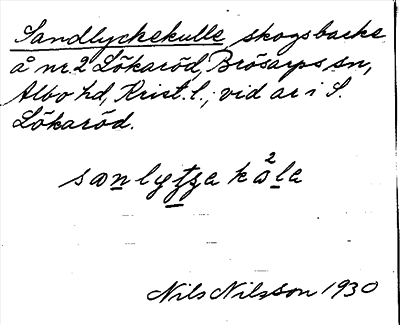 Sandlyckekulle, skogsbacke
å nr 2 Lökaröd, Brösarps sn,
Albo hd, Krist. l.; vid ar i S.
Lökaröd.
Nils Nilsson 1930